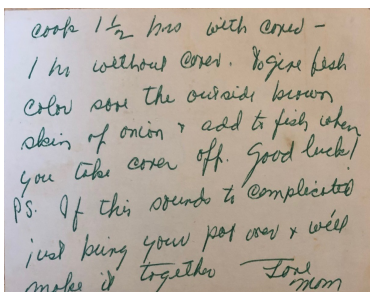 cook 1 1/2 hrs with cover -
1 hr without cover. To give fish
color save the outside brown
skin of onion & add to fish when
you take cover off. Good luck!
PS. If this sounds to complicated
just bring your pot over & we'll
make it together Love
Mom